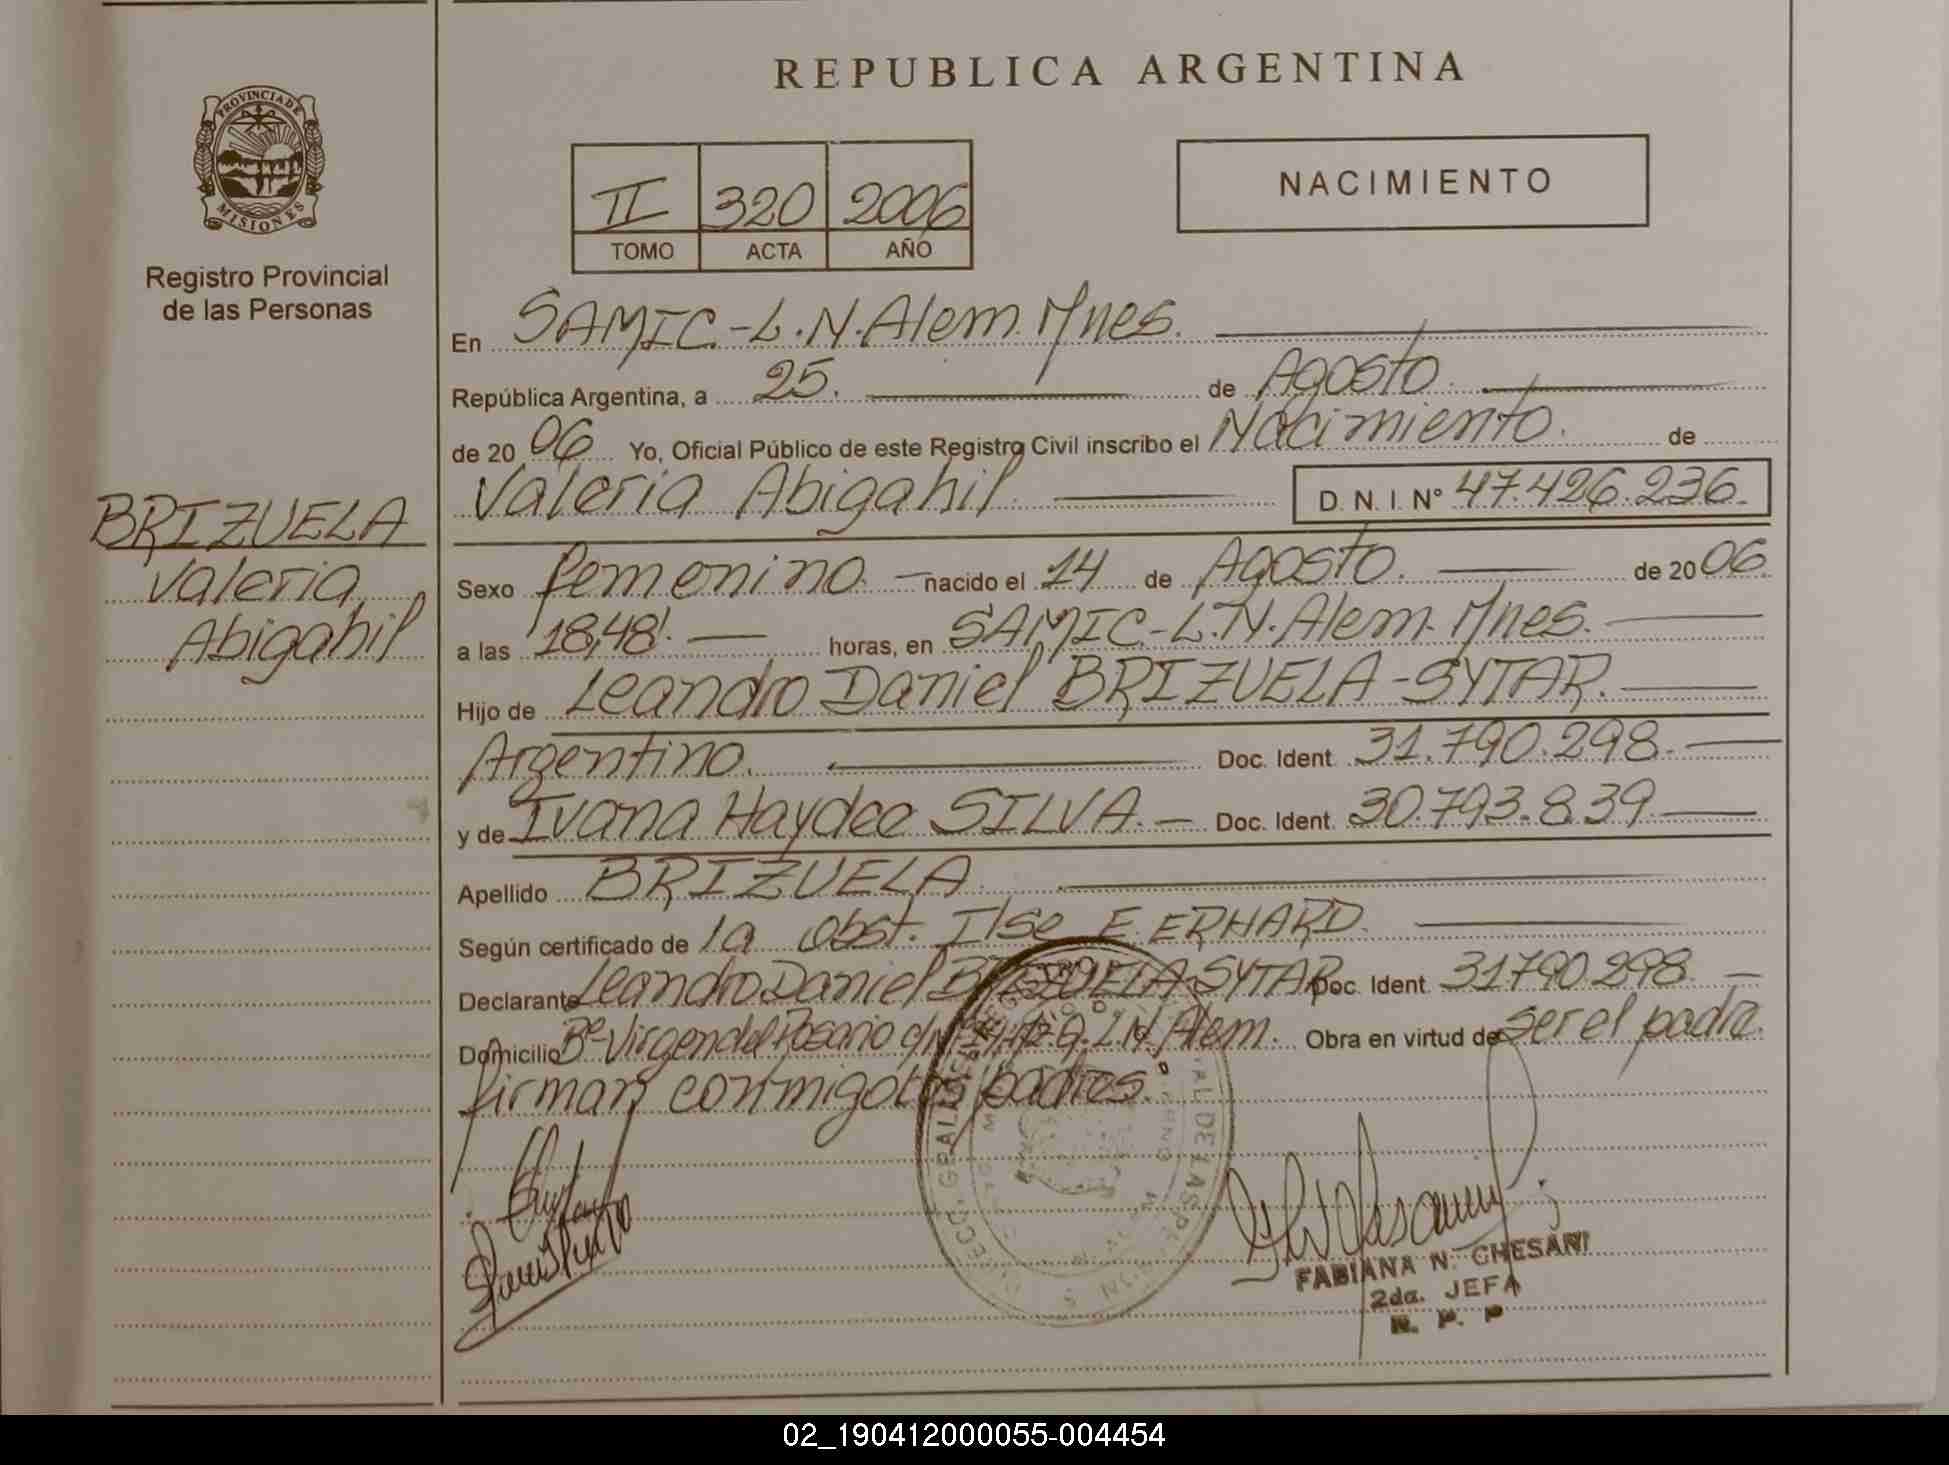 REPUBLICA ARGENTINA
PROVINCIA DE
MISIONES
Registro Provincial
de las Personas
II 320 2006
TOMO ACTA AÑO
NACIMIENTO
En SAMIC.-L.N.Alem.Mnes.
República Argentina, a 25. de Agosto.
de 20 06 Yo, Oficial Público de este Registro Civil inscribo el Nacimiento. de
Valeria Abigahil D. N. I. Nº 47.426.236.
BRIZUELA
Valeria
Abigahil
Sexo femenino. nacido el 14 de Agosto. de 20 06.
a las 18,48'. horas, en SAMIC.-L.N.Alem.Mnes.
Hijo de Leandro Daniel BRIZUELA-SYTAR.
Argentino. Doc. Ident. 31.790.298.
y de Ivana Haydee SILVA. Doc. Ident. 30.793.839.
Apellido BRIZUELA.
Según certificado de la obst. Ilse E. ERHARD.
Declarante Leandro Daniel BRIZUELA SYTAR Doc. Ident. 31790.298.
Domicilio Bº Virgen del Rosario L.N. Alem. Obra en virtud de ser el padre.
firman conmigo los padres.
FABIANA N. CHESARI
2da. JEFA
R. P. P
02_190412000055-004454